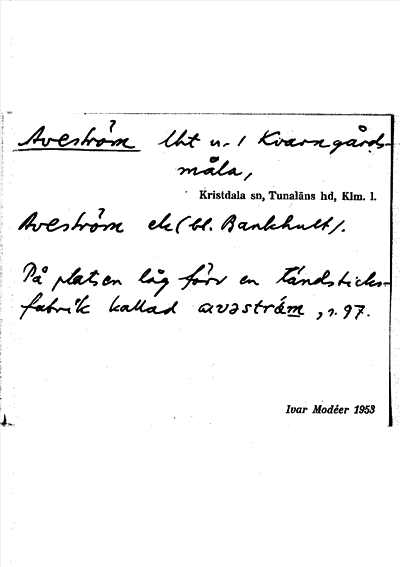 Aveström lht u. 1 Kvarngårds-
måla,
Kristdala sn, Tunaläns hd, Klm. l.
Aveström ek (bl. Bankhult).
På platsen låg förr en tändsticks-
fabrik kallad avəstrǿm, s. 97.
Ivar Modéer 1953